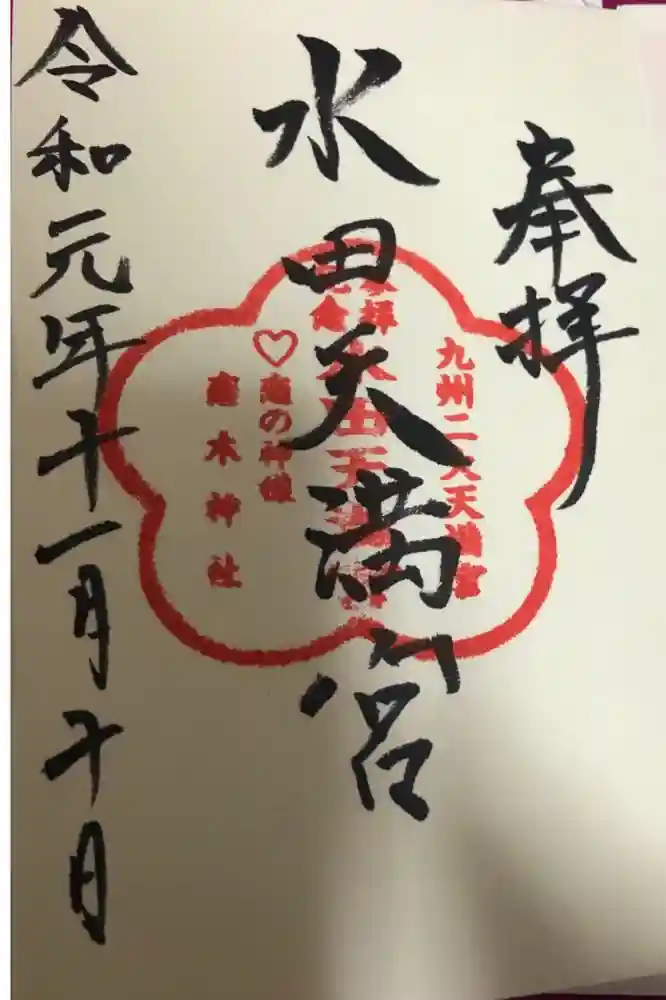 奉拝
九州二大天満宮
水田天満宮
恋の神様
恋木神社
令和元年十一月十日